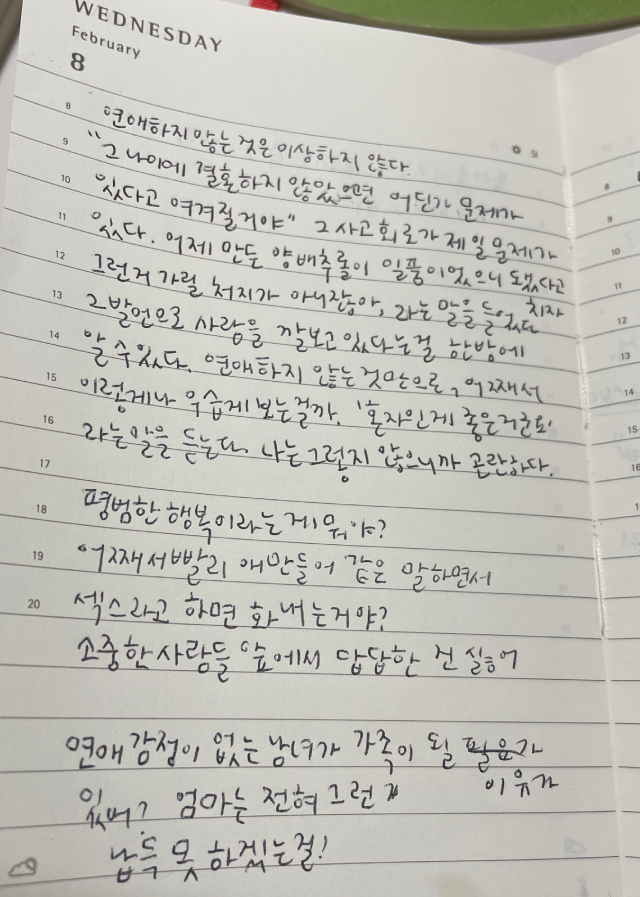 WEDNESDAY
February
8
8 연애하지 않는 것은 이상하지 않다.
9 "그 나이에 결혼하지 않았으면 어딘가 문제가
10 있다고 여겨질거야" 그 사고회로가 제일 문제가
11 있다. 어제 만든 양배추롤이 일품이었으니 됐다고 치자
12 그런거 가릴 처지가 아니잖아, 라는 말을 들었다
13 그 발언으로 사람을 깔보고 있다는걸 한방에
14 알 수 있다. 연애하지 않는 것만으로, 어째서
15 이렇게나 우습게 보는걸까. '혼자인게 좋은거군요'
16 라는 말을 듣는다. 나는 그렇지 않으니까 곤란하다.
17
18 평범한 행복이라는게 뭐야?
19 어째서 빨리 애만들어 같은 말하면서
20 섹스라고 하면 화내는거야?
소중한 사람들 앞에서 답답한 건 싫어
연애 감정이 없는 남녀가 가족이 될 필요가
이유가
있어? 엄마는 전혀 그런거
납득 못 하겠는걸!
8
9
10
11
12
13
14
15
16